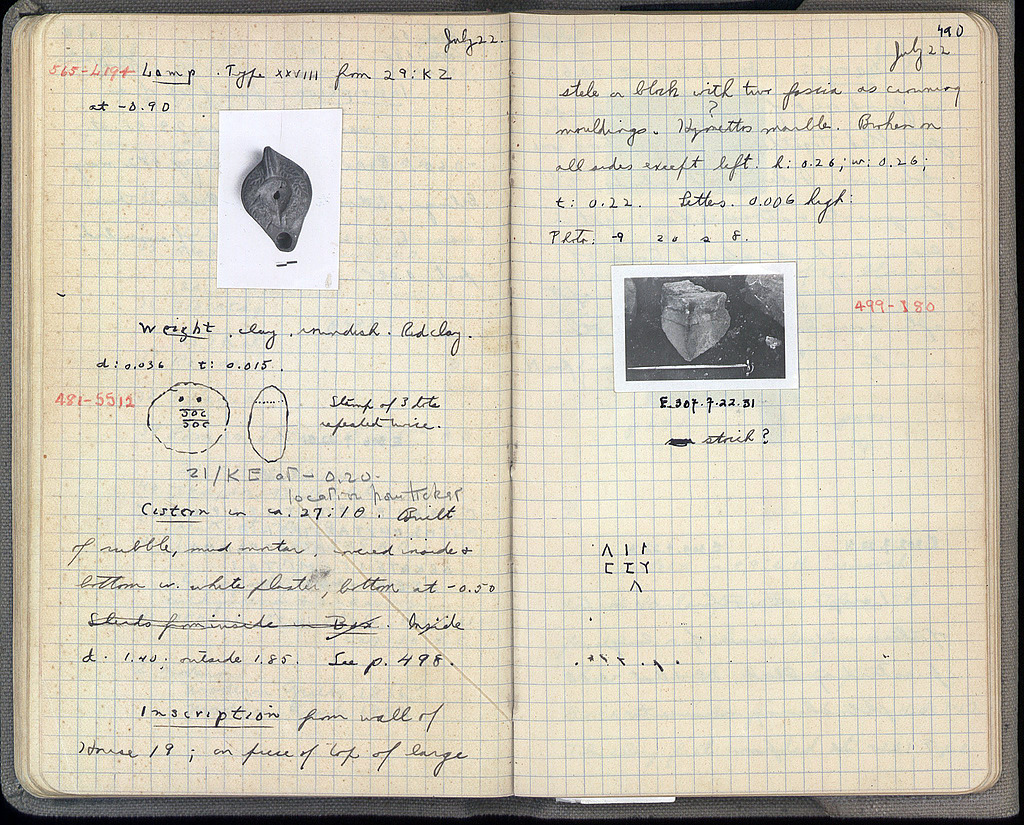 July 22.
565-L194 Lamp. Type XXVIII from 29:KZ
at -0.90
Weight, clay, roundish. Red clay.
d: 0.036 t: 0.015.
481-5512
SOC
SOC
Stamp of 3 lets
repeated twice.
21/KE at -0.20-
location from ticket
Cistern in ca. 27:10. Built
of rubble, mud mortar, covered inside &
bottom w. white plaster, bottom at -0.50
Inside
d. 1.40; outside 1.85. See p. 498.
Inscription from wall of
House 19; on piece of top of large
490
July 22
stele or block with two fascia as crowning
?
mouldings. Hymettos marble. Broken on
all sides except left. h: 0.26; w: 0.26;
t: 0.22. Letters. 0.006 high:
Photo: -9 20 2 8.
499-I80
E 307.7.22.31
stoich?
Λ Ι
Γ Ξ Υ
Λ